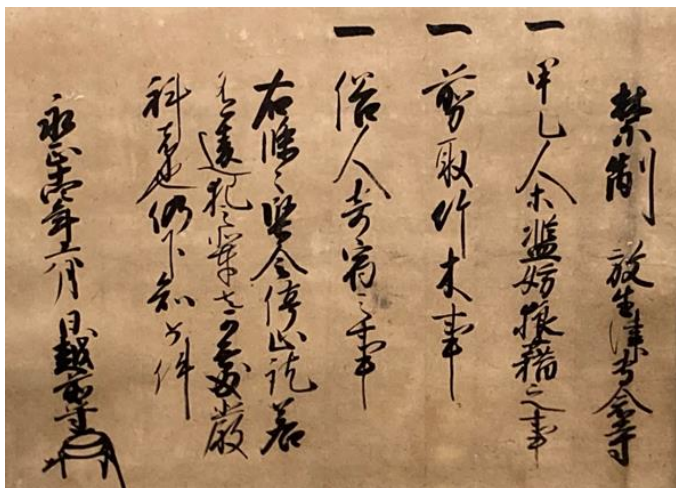 禁制 放生津専念寺
一 甲乙人等濫妨狼藉之事
一 剪取竹木事
一 俗人寄宿之事
右條々堅令停止訖若
有違犯之輩者可處嚴
科者也仍下知如件
永正 年 月 日越前守